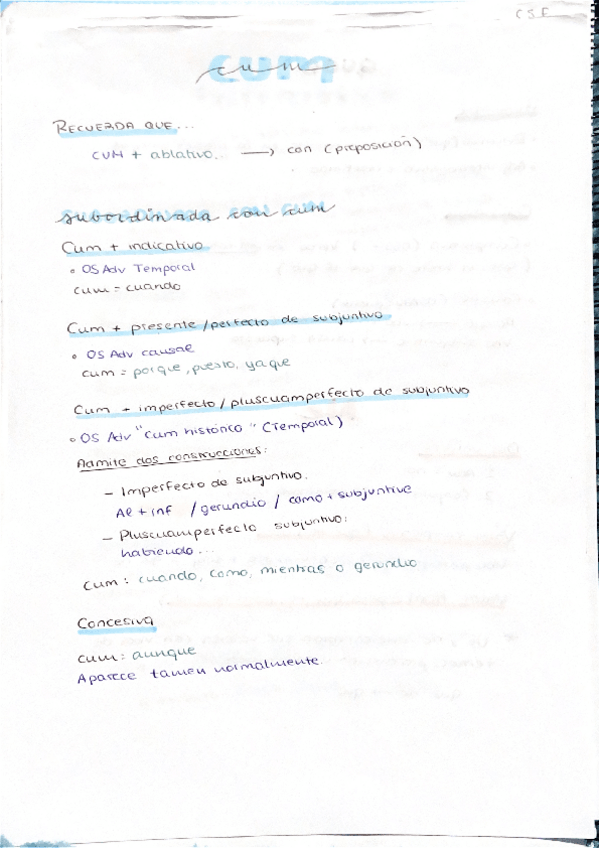 CSF
cum
RECUERDA QUE...
CUM + ablativo. → con (preposición)
subordinada con cum
Cum + indicativo
• OS Adv Temporal
cum = cuando
Cum + presente/perfecto de subjuntivo
• OS Adv causal
cum = porque, puesto, ya que
Cum + imperfecto/pluscuamperfecto de subjuntivo
• OS Adv "Cum histórico" (Temporal)
Admite dos construcciones:
- Imperfecto de subjuntivo:
Al + inf /gerundio / como + subjuntive
- Pluscuamperfecto subjuntivo:
habiendo...
Cum: cuando, como, mientras o gerundio
Concesiva
cum: aunque
Aparece tamen normalmente.